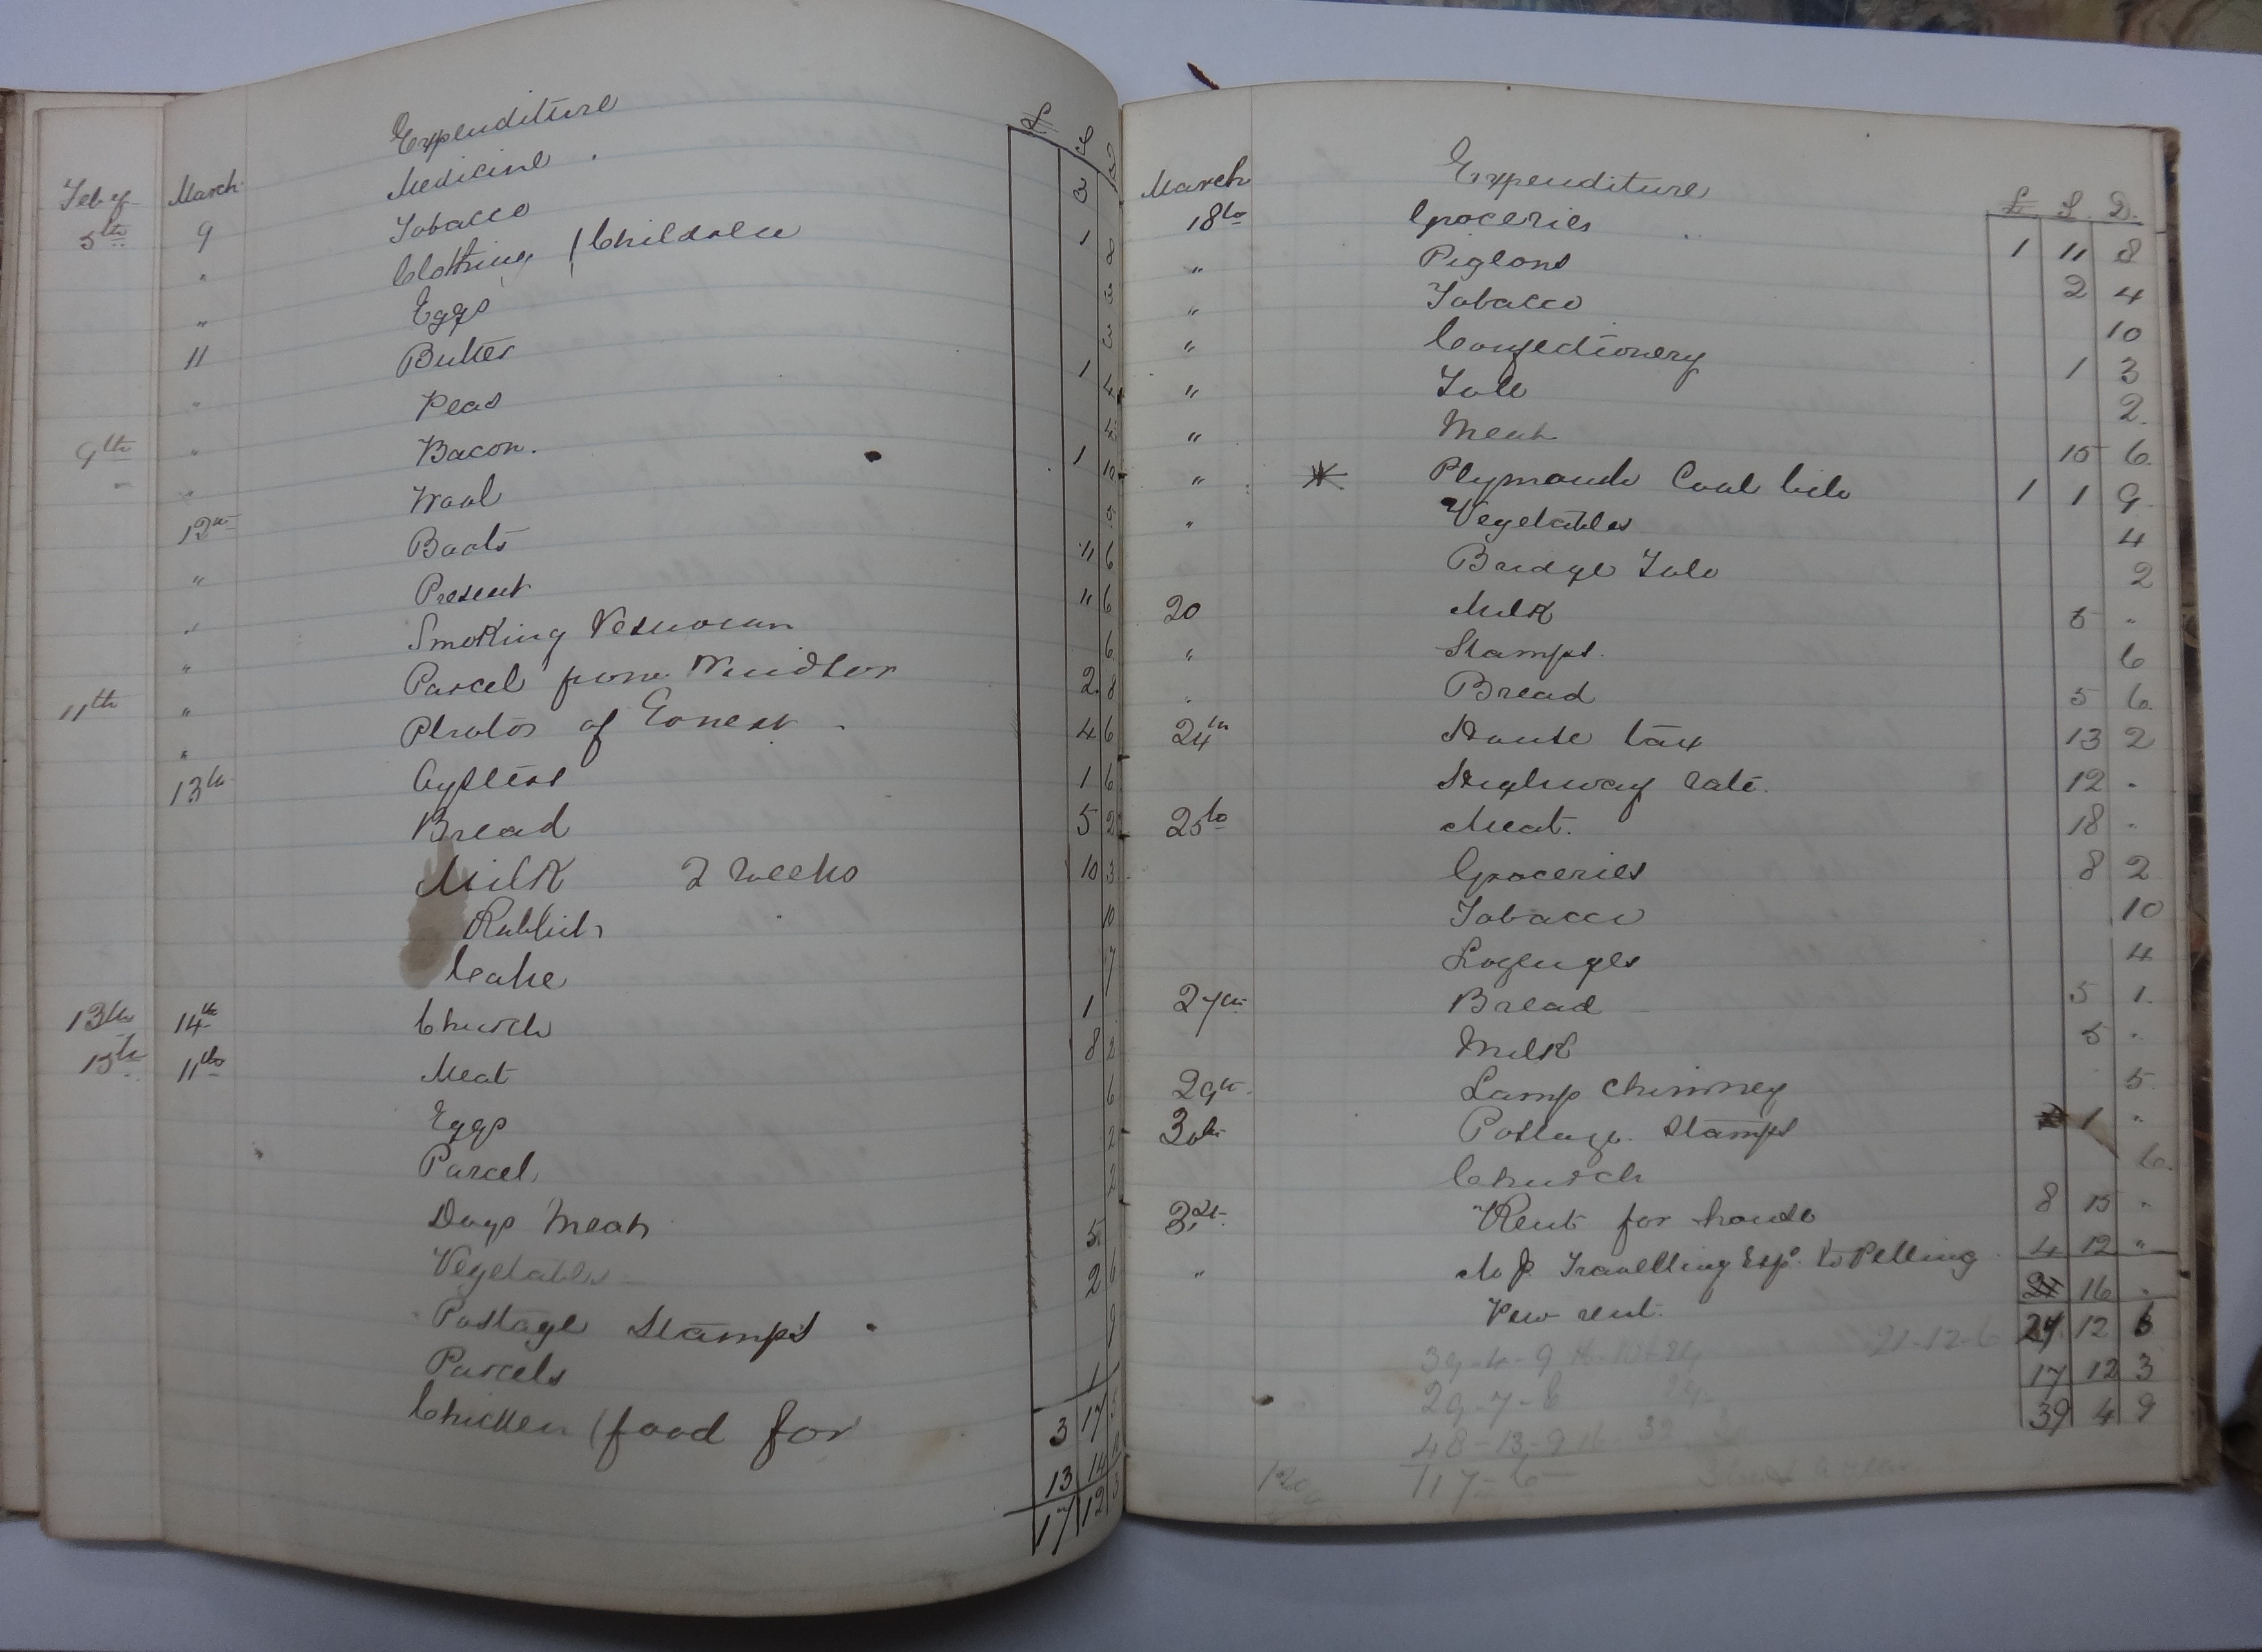 Feby
5th
9th
11th
13th
15th
March Expenditure £ S D
9 Medicine 3
" Tobacco 1 8
" Clothing (Children 3
11 Eggs 3
" Butter 1 4
" Peas 4
" Bacon. 1 10
12th Wool 5
" Boots 11 6
" Present 11 6
" Smoking 6
" Parcel from Windsor 2 8
" Photos of Ernest 4 6
13th Oysters 1 6
Bread 5 2
Milk 2 weeks 10 3
Rabbit 10
Cake 7
14th Church 1
11th Meat 8 2
Eggs 6
Parcel 2
Dogs Meat 2
Vegetables 5
Postage Stamps 2 6
Parcels 9
Chicken (food for 1
3 17 5
13 14 10
17 12 3
March Expenditure £ S. D.
18th Groceries 1 11 8
" Pigeons 2 4
" Tobacco 10
" Confectionery 1 3
" Toll 2
" Meat 15 6
" Plymouth Coal bill 1 1 9
" Vegetables 4
Bridge Toll 2
20 Milk 5 "
" Stamps. 6
" Bread 5 6
24th House tax 13 2
Highway rate. 12 "
25th Meat. 18 "
Groceries 8 2
Tobacco 10
Lozenges 4
27th Bread 5 1
Milk 5 "
29th Lamp chimney 5
30th Postage Stamps 1 "
Church 6
31st Rent for house 8 15 "
" Travelling Exp. to Pelling 4 12 "
Pew rent. 16 "
21-12-6 21 12 6
39-4-9 17 12 3
29-7-6 39 4 9
48-13-9
117-6